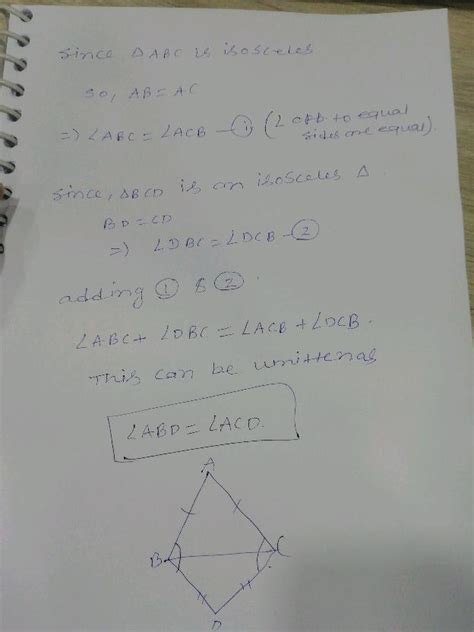 Since △ABC is isosceles
so, AB = AC
=) ∠ABC = ∠ACB —① (∠ opp to equal
sides are equal).
Since, △BCD is an isosceles △.
BD = CD
=) ∠DBC = ∠DCB —②
adding ① & ②.
∠ABC + ∠DBC = ∠ACB + ∠DCB.
This can be written as
∠ABD = ∠ACD.
A
B C
D